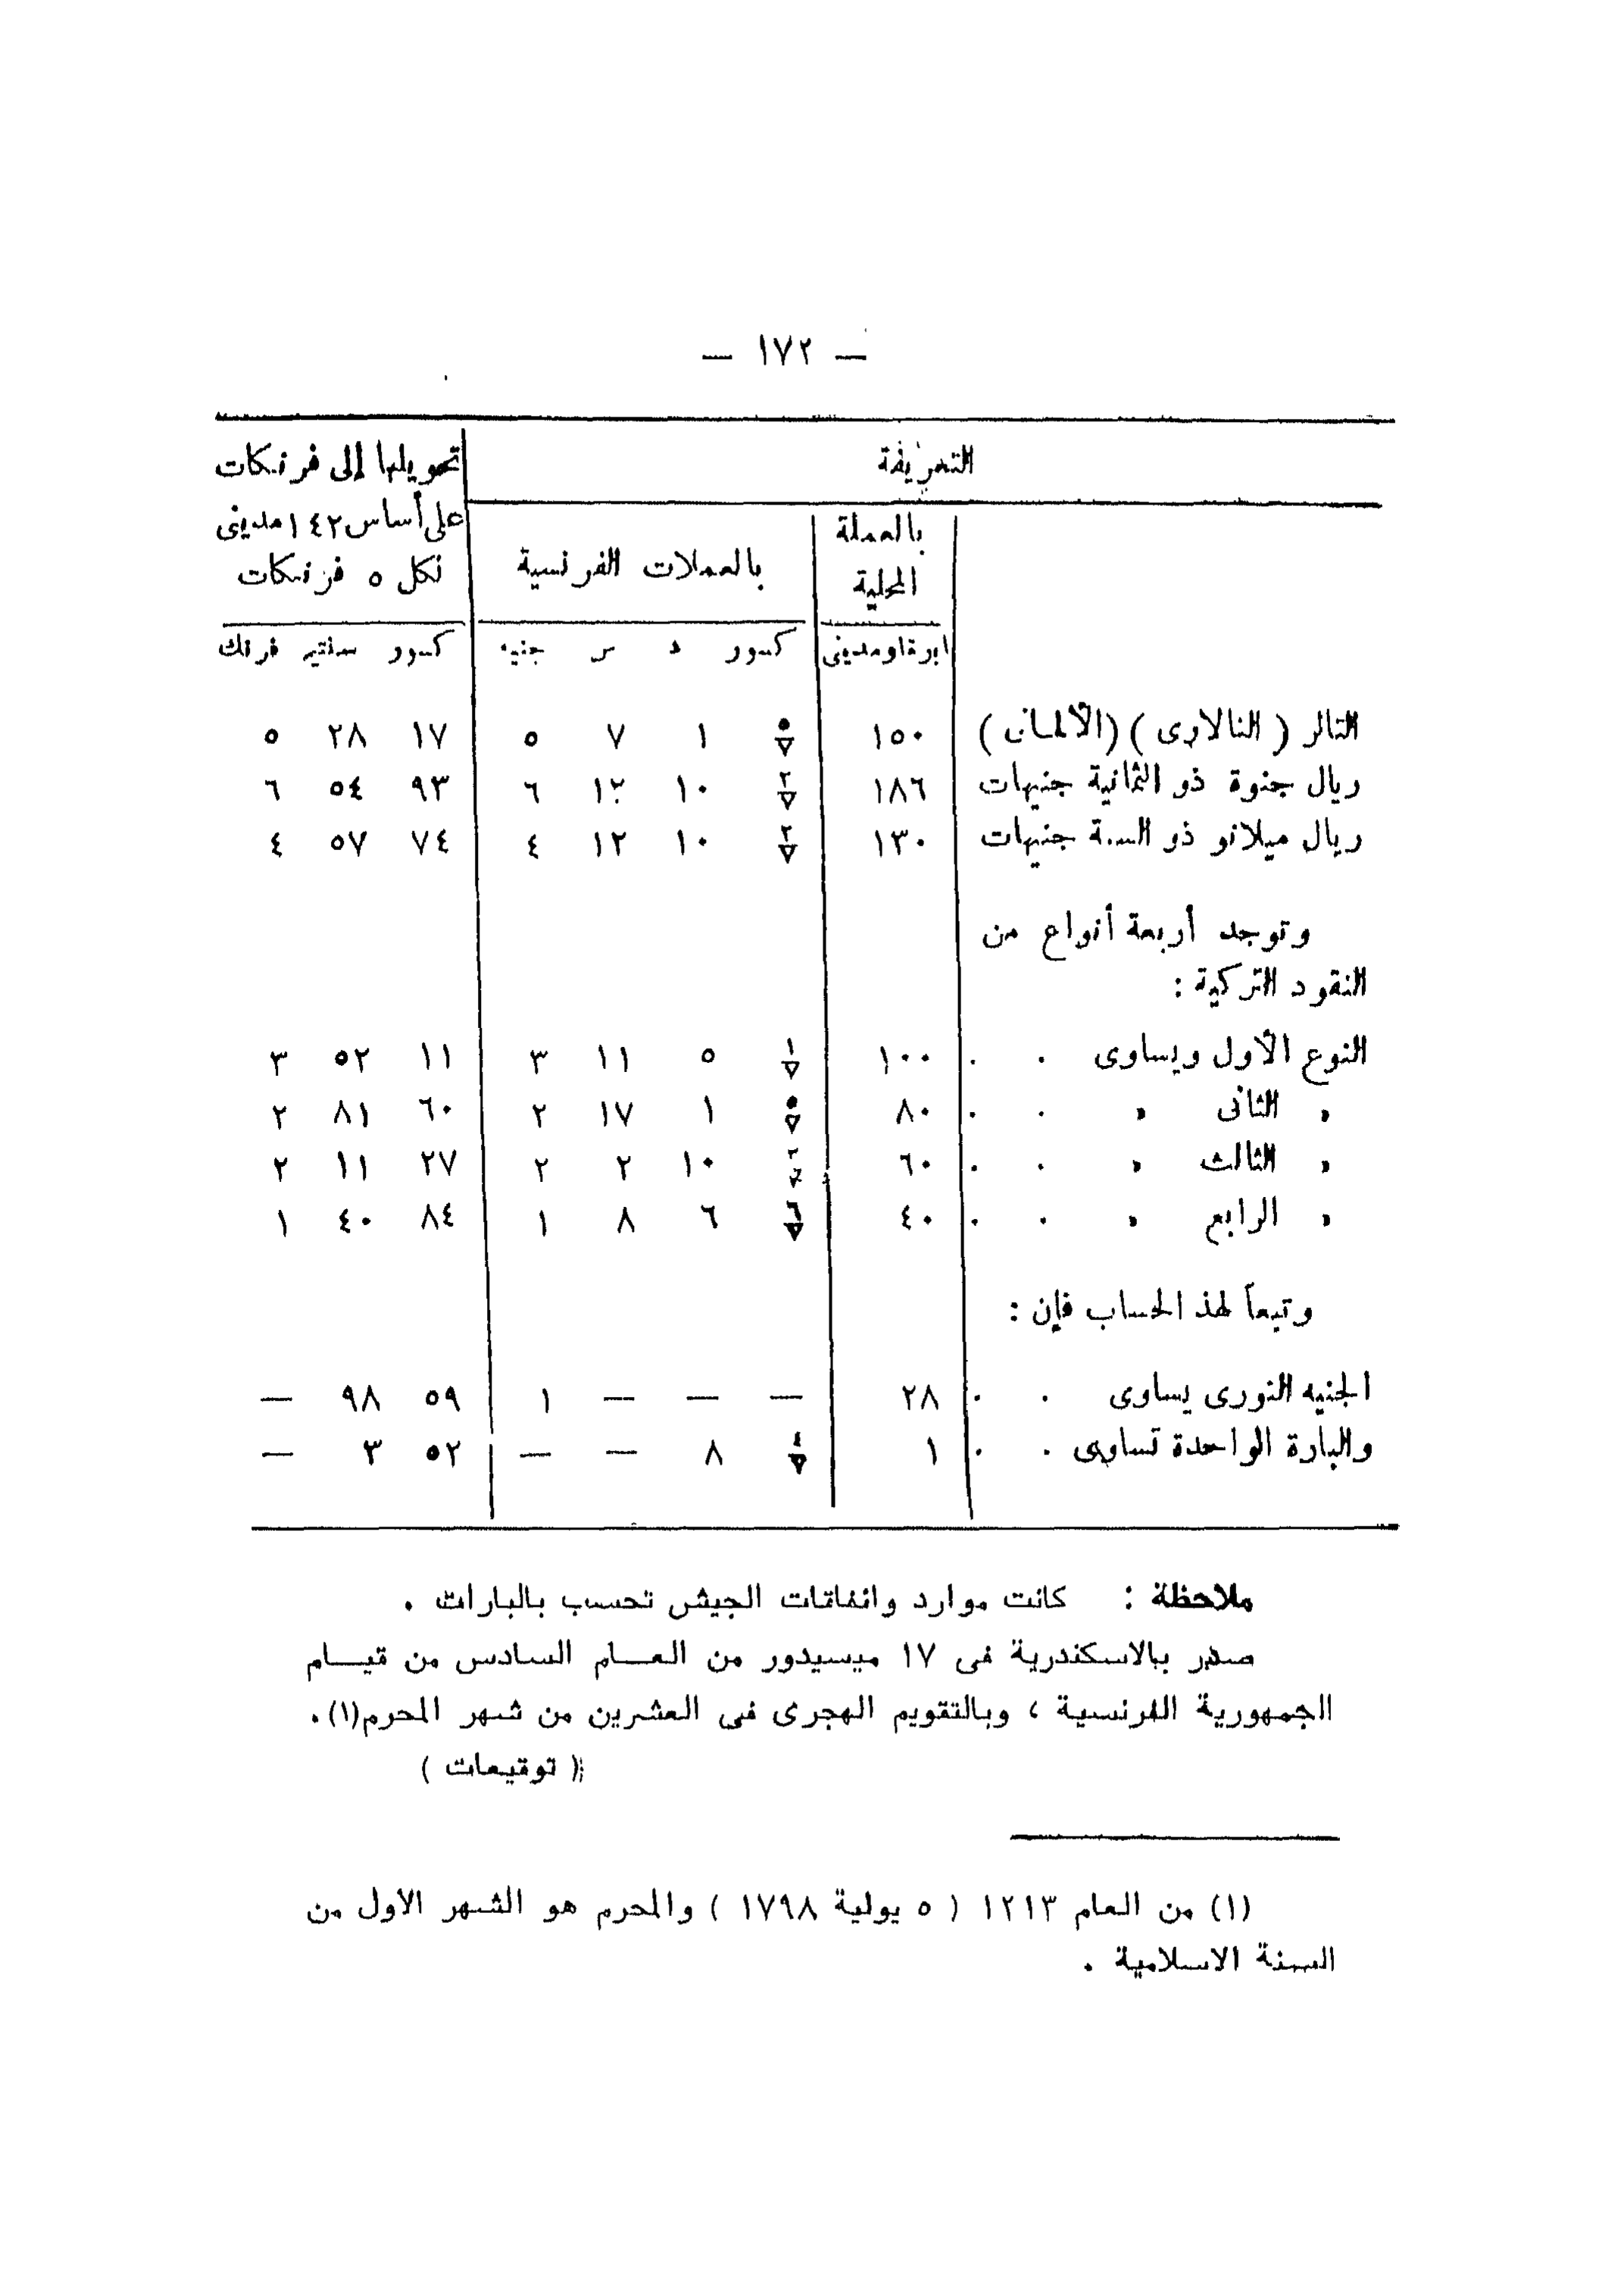 — ١٧٢ —
التعريفة
تحويلها إلى فرنكات
على أساس ١٤٢ مدينى
لكل ٥ فرنكات
بالعملة
المحلية
بالعملات الفرنسية
بارة او مدينى
كسور د س جنيه
كسور سنتيم فرنك
التالر ( التالارى ) (الألمانى) ١٥٠ ٥/٧ ١ ٧ ٥ ١٧ ٢٨ ٥
ريال جنوة ذو الثمانية جنيهات ١٨٦ ٢/٧ ١٠ ١٢ ٦ ٩٣ ٥٤ ٦
ريال ميلانو ذو الستة جنيهات ١٣٠ ٢/٧ ١٠ ١٢ ٤ ٧٤ ٥٧ ٤
وتوجد أربعة أنواع من
النقود التركية :
النوع الأول ويساوى . . ١٠٠ ١/٧ ٥ ١١ ٣ ١١ ٥٢ ٣
» الثانى » . . ٨٠ ٥/٧ ١ ١٧ ٢ ٦٠ ٨١ ٢
» الثالث » . . ٦٠ ٢/٧ ١٠ ٢ ٢ ٢٧ ١١ ٢
» الرابع » . . ٤٠ ٦/٧ ٦ ٨ ١ ٨٤ ٤٠ ١
وتبعاً لهذ الحساب فإن :
الجنيه التورى يساوى . . ٢٨ — — — ١ ٥٩ ٩٨ —
والبارة الواحدة تساوى . . ١ ٤/٧ ٨ — — ٥٢ ٣ —
ملاحظة : كانت موارد وانفاقات الجيش تحسب بالبارات .
صدر بالاسكندرية فى ١٧ ميسيدور من العـــام السادس من قيـــام
الجمهورية الفرنسية ، وبالتقويم الهجرى فى العشرين من شهر المحرم(١) .
( توقيعات )
(١) من العام ١٢١٣ ( ٥ يولية ١٧٩٨ ) والمحرم هو الشهر الاول من
السنة الاسلامية .